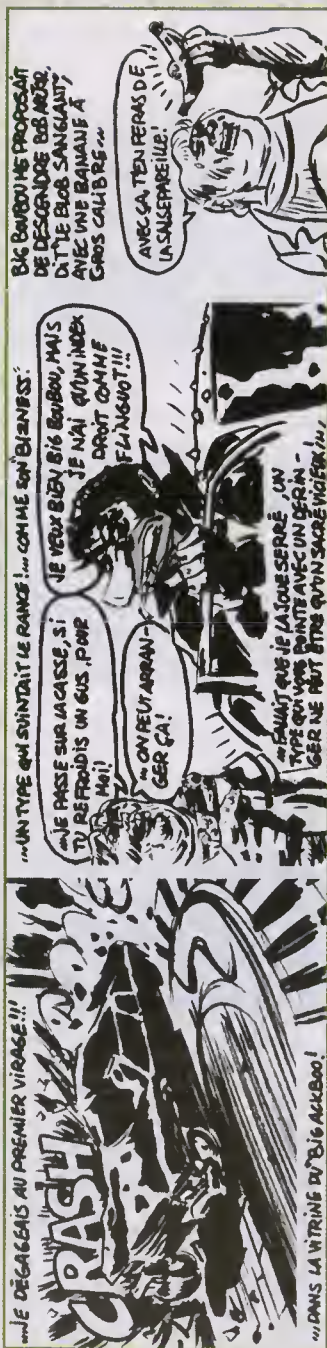 ...JE DÉGAGEAIS AU PREMIER VIRAGE!!!
CRASH
...DANS LA VITRINE DU "BIG ACKBOO!
...UN TYPE QUI SUINTAIT LE RANCE!... COMME SON BIZNESS"
...JE PASSE SUR LA CASSE, SI
TU REFROIDIS UN GUS, POUR
MOI!
JE VEUX BIEN BIG BOUBOU, MAIS
JE N'AI QU'UN INDEX
DROIT COMME
FLINGUOT!!!
... ON PEUT ARRAN-
GER ÇA!
...FALLAIT QUE JE LA JOUE SERRÉ, UN
TYPE QUI VOUS POINTE AVEC UN BERIN-
GER NE PEUT ÊTRE QU'UN SACRÉ VICIEUX!...
BIG BOUBOU ME PROPOSAIT
DE DESCENDRE BOB
DIT "LE BLOB SANGLANT",
AVEC UNE BANANE À
GROS CALIBRE...
AVEC ÇA, T'EN FERAS DE
LA SALSEPAREILLE!